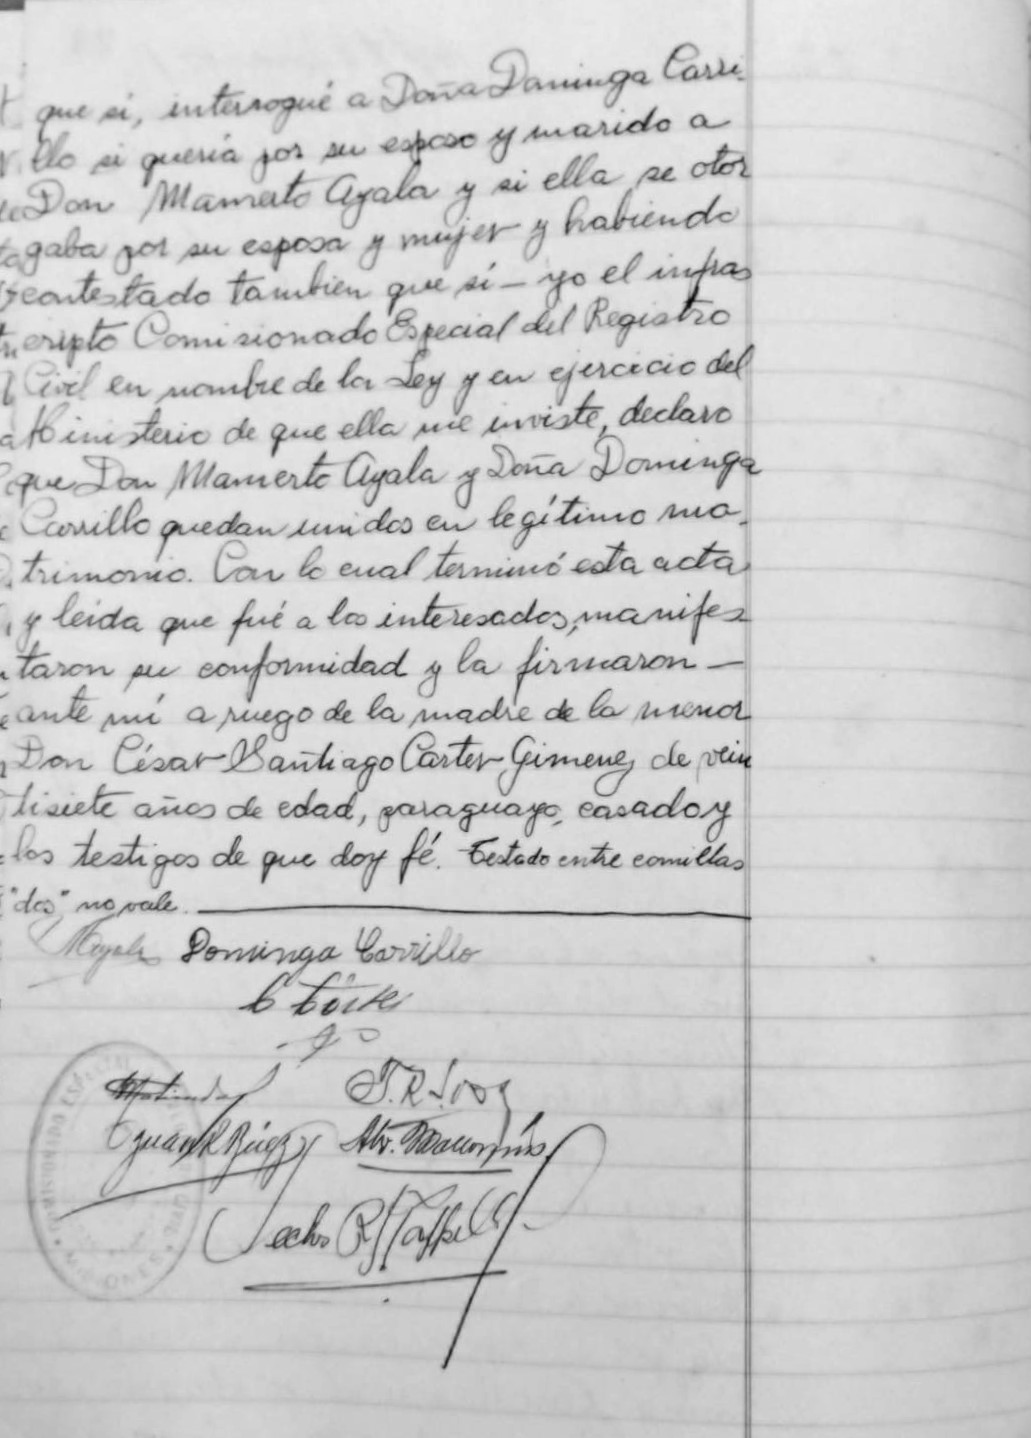 que si, interrogué a Doña Dominga Carri-
llo si quería por su esposo y marido a
Don Mamerto Ayala y si ella se otor
gaba por su esposa y mujer y habiendo
contestado tambien que sí — yo el infras
cripto Comisionado Especial del Registro
Civil en nombre de la Ley y en ejercicio del
Ministerio de que ella me inviste, declaro
que Don Mamerto Ayala y Doña Dominga
Carrillo quedan unidos en legítimo ma-
trimonio. Con lo cual terminó esta acta
y leída que fué a los interesados, manifes
taron su conformidad y la firmaron —
ante mí a ruego de la madre de la menor
Don César Santiago Carter Gimenez de vein
tisiete años de edad, paraguayo, casado y
los testigos de que doy fé. Testado entre comillas
"dos" no vale.
MAyala Dominga Carrillo
COMISIONADO ESPECIAL
MISIONES